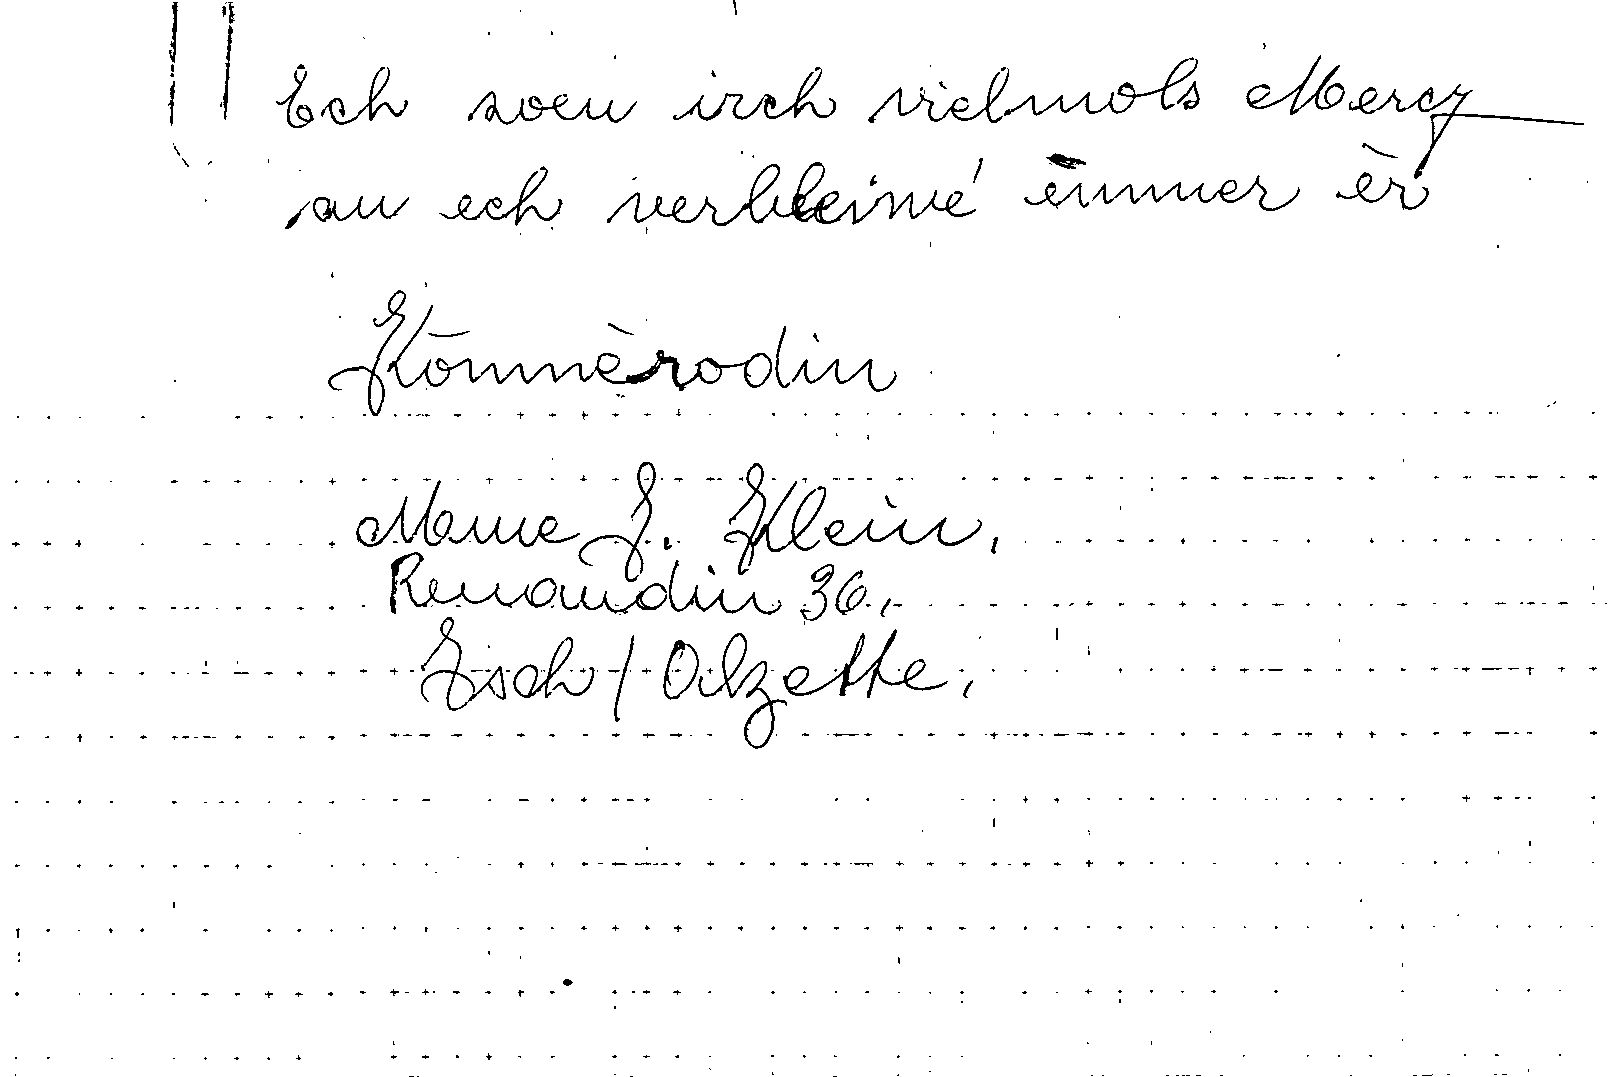 Ech soeu irch vielmols Mercy
an ech verbleiwe´ ëmmer èr
Kōmmèrodin
Mme J. Klein,
Renaudin 36,
Esch / Olzette,